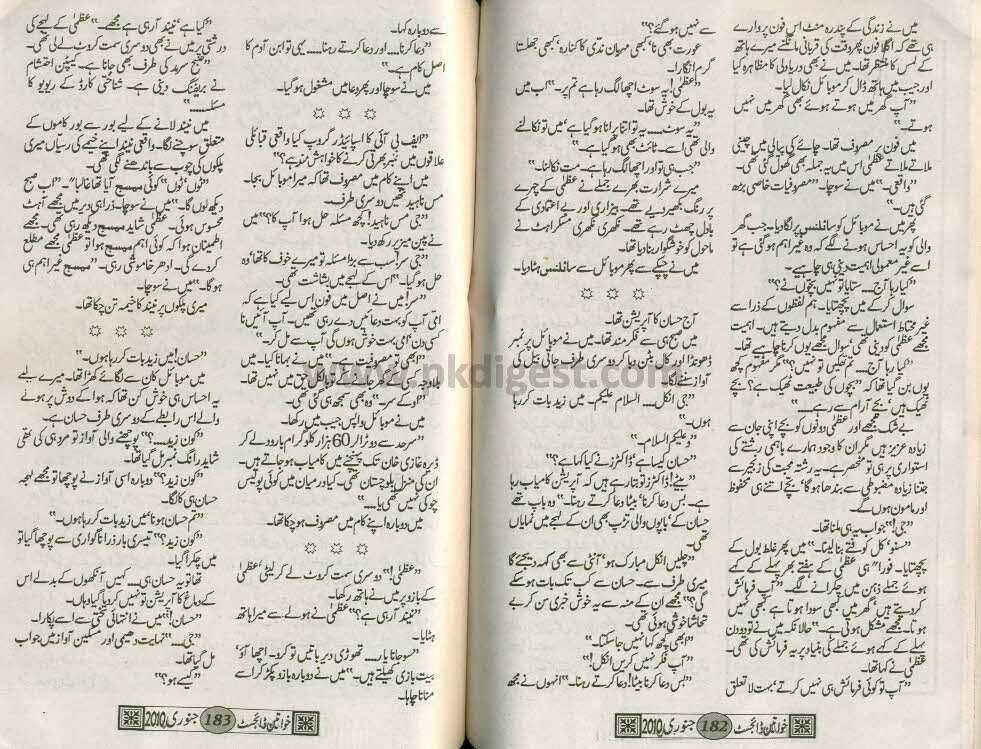 میں نے زندگی کے پندرہ منٹ اس فون پر وارے
ہی تھے کہ اگلا فون پھر وقت کی قربانی مانگنے میرے ہاتھ
کے لمس کا منتظر تھا۔ میں نے بھی دریا دلی کا مظاہرہ کیا
اور جیب میں ہاتھ ڈال کر موبائل نکال لیا۔
”آپ گھر میں ہوتے ہوئے بھی گھر میں نہیں
ہوتے۔“
میں فون پر مصروف تھا۔ چائے کی پیالی میں چینی
ملاتے ملاتے عظمیٰ اس میں یہ جملہ بھی گھول گئی تھی۔
”واقعی۔“ میں نے سوچا۔ ”مصروفیات خاصی بڑھ
گئی ہیں۔“
پھر میں نے موبائل کو سائلنس پر لگا دیا۔ جب گھر
والی کو یہ احساس ہونے لگے کہ وہ غیر اہم ہو گئی ہے تو
اسے غیر معمولی اہمیت دینی ہی چاہیے۔
”کیا رہا آج۔ ستایا تو نہیں بچوں نے؟“
سوال کر کے میں پچھتایا۔ ہم لفظوں کے ذرا سے
غیر محتاط استعمال سے مفہوم بدل دیتے ہیں۔ اہمیت
عظمیٰ کو دینی تھی ’سوال مجھے یوں کرنا چاہیے تھا۔
”کیا رہا آج۔ تم تھکیں تو نہیں؟“ مگر مفہوم کچھ
یوں بن گیا تھا کہ ”بچوں کی طبیعت ٹھیک ہے؟ بچے
ٹھیک ہیں‘ بچے آرام سے رہے.....“
بے شک مجھے اور عظمیٰ دونوں کو بچے اپنی جان سے
زیادہ عزیز ہیں مگر ان کا وجود ہمارے باہمی رشتے کی
استواری پر ہی تو منحصر ہے۔ یہ رشتہ محبت کی زنجیر سے
جتنا زیادہ مضبوطی سے بندھا ہو گا‘ بچے اتنے ہی محفوظ
اور مامون ہوں گے۔
”جی!“ جواب یہ ہی ملنا تھا۔
”سنو‘ کل کوفتے بنا لینا۔“ میں پھر غلط بول کے
پچھتایا۔ فورا“ ہی عظمیٰ کے ہفتے بھر پہلے کے کہے
ہوئے جملے ذہن میں چکرانے لگے۔ ”آپ فرمائش
کر دیتے ہیں‘ گھر میں کبھی سودا ہوتا ہے کبھی نہیں
ہوتا۔ مجھے مشکل ہوتی ہے۔“ حالانکہ میں نے تو دو دن
پہلے کے کہے ہوئے جملے کی بنیاد پر یہ فرمائش کی تھی۔
عظمیٰ نے کہا تھا۔
”آپ تو کوئی فرمائش ہی نہیں کرتے‘ بہت لا تعلق
سے نہیں ہو گئے؟“
عورت بھی نا‘ کبھی مہربان ندی کا کنارہ‘ کبھی جھلستا
گرم انگارا۔
”عظمیٰ! یہ سوٹ اچھا لگ رہا ہے تم پر۔“ اب میں
یہ بول کے خوش تھا۔
”یہ سوٹ..... یہ تو اتنا پرانا ہو گیا ہے‘ میں تو نکالنے
والی تھی اسے۔ ٹائٹ بھی ہو گیا ہے۔“
”جب ہی تو اور اچھا لگ رہا ہے۔ مت نکالنا۔“
میرے شرارت بھرے جملے نے عظمیٰ کے چہرے
پر رنگ بکھیر دیے تھے۔ بیزاری اور بے اعتمادی کے
بادل چھٹ رہے تھے۔ نکھری نکھری مسکراہٹ نے
ماحول کو خوشگوار بنا دیا تھا۔
میں نے چپکے سے پھر موبائل سے سائلنس ہٹا دیا۔
آج حسان کا آپریشن تھا۔
میں صبح ہی سے فکر مند تھا۔ میں نے موبائل پر نمبر
ڈھونڈا اور کال بٹن دبا کر دوسری طرف جاتی بیل کی
آواز سننے لگا۔
”جی انکل..... السلام علیکم۔ میں زید بات کر رہا
ہوں۔“
”وعلیکم السلام۔“
”حسان کیسا ہے‘ ڈاکٹرز نے کیا کہا ہے؟“
”بیٹے! ڈاکٹرز تو بتا رہے ہیں کہ آپریشن کامیاب رہا
ہے۔ بس دعا کرنا‘ بیٹا دعا کرتے رہنا۔“ وہ باپ تھے
حسان کے‘ باپوں والی تڑپ بھی ان کے لہجے میں نمایاں
تھی۔
”چلیں انکل مبارک ہو‘ آنٹی سے بھی کہہ دیجئے گا
میری طرف سے۔ حسان سے کب تک بات ہو سکے
گی؟“ مجھے ان کے منہ سے یہ خوش خبری سن کر بے
تحاشا خوشی ہوئی تھی۔
”ابھی کچھ کہا نہیں جا سکتا۔“
”آپ فکر نہیں کریں انکل!“
”بس دعا کرنا بیٹا! دعا کرتے رہنا۔“ انہوں نے مجھ
خواتین ڈائجسٹ 182 جنوری 2010
سے دوبارہ کہا۔
”دعا کرنا..... اور دعا کرتے رہنا..... یہی تو ابن آدم کا
اصل کام ہے۔“
میں نے سوچا اور پھر دعا میں مشغول ہو گیا۔
”ایف بی آئی کا اسپائیڈر گروپ کیا واقعی قبائلی
علاقوں میں مخبر بھرتی کرنے کا خواہش مند ہے؟“
میں اپنے کام میں مصروف تھا کہ میرا موبائل بجا۔
مس ناہید تھیں دوسری طرف۔
”جی مس ناہید! کچھ مسئلہ حل ہوا آپ کا؟“ میں
نے پین میز پر رکھ دیا۔
”جی سر! سب سے بڑا مسئلہ تو میرے خوف کا تھا‘ وہ
حل ہو گیا۔“ اس کے لہجے میں بشاشت تھی۔
”سر! میں نے اصل میں فون اس لیے کیا ہے کہ
امی آپ کو بہت دعائیں دے رہی تھیں۔ آپ آئیں نا
کسی دن‘ امی بہت خوش ہوں گی آپ سے مل کر۔“
”ابھی تو مصروفیت ہے۔“ میں نے بہانا کیا۔ میں
بلاوجہ کسی کے گھر جانے کے اتنا بھی حق میں نہیں تھا۔
”اوکے سر۔“ وہ بھی سمجھ ہی گئی تھی۔
میں نے موبائل واپس جیب میں رکھا۔
”سرحد سے دو ٹرالر 60 ہزار کلو گرام بارود لے کر
ڈیرہ غازی خان تک پہنچنے میں کامیاب ہو جاتے ہیں۔
ان کی منزل بلوچستان تھی۔ کیا درمیان میں کوئی پولیس
چوکی نہیں تھی یا.....
میں دوبارہ اپنے کام میں مصروف ہو چکا تھا۔
”عظمیٰ!“ دوسری سمت کروٹ لے کر لیٹی‘ عظمیٰ
کے بازو پر میں نے ہاتھ رکھا۔
”نیند آ رہی ہے؟“ عظمیٰ نے ہولے سے میرا ہاتھ
ہٹایا۔
”سو جانا یار..... تھوڑی دیر باتیں تو کرو۔ اچھا آؤ‘
بیت بازی کھیلتے ہیں۔“ میں نے دوبارہ بازو پکڑ کر اسے
منانا چاہا۔
”کیا ہے‘ نیند آ رہی ہے مجھے۔“ عظمیٰ کے لہجے کی
درشتی پر میں نے بھی دوسری سمت کروٹ لے لی تھی۔
”صبح سرمد کی طرف بھی جانا ہے۔ کیپٹن احتشام
نے بریفنگ دینی ہے۔ شناختی کارڈ کے ریویو کا
مسئلہ.....“
میں نیند لانے کے لیے بور سے بور کاموں کے
متعلق سوچنے لگا۔ واقعی نیند اپنے خیمے کی رسیاں میری
پلکوں کی چوب سے باندھنے لگی تھی۔
”ٹوں‘ ٹوں“ کوئی میسیج آیا تھا غالبا“۔ ”اب صبح
دیکھوں گا۔“ میں نے سوچا۔ ذرا ہی دیر میں مجھے آہٹ
محسوس ہوئی۔ عظمیٰ شاید میسیج دیکھ رہی تھی۔ مجھے
اطمینان ہوا کہ کوئی اہم میسیج ہوا تو عظمیٰ مجھے مطلع
کر دے گی۔ ادھر خاموشی رہی۔ ”میسیج غیر اہم ہی
ہو گا۔“ میں نے سوچا۔
میری پلکوں پر نیند کا خیمہ تن چکا تھا۔
”حسان! میں زید بات کر رہا ہوں۔“
میں موبائل کان سے لگائے کھڑا تھا۔ میرے لیے
یہ احساس ہی خوش کن تھا کہ ہوا کے دوش پر ہونے
والے اس رابطے کے دوسری طرف حسان ہے۔
”کون زید.....؟“ پوچھنے والی آواز تو مردہ ہی کی تھی
شاید رانگ نمبر مل گیا تھا۔
”کون زید؟“ دوبارہ اسی آواز نے پوچھا تو مجھے لہجہ
حسان ہی کا لگا۔
”تم حسان ہو نا‘ میں زید بات کر رہا ہوں۔“
”کون زید؟“ تیسری بار ذرا ناگواری سے پوچھا گیا تو
میں چکرا گیا۔
تھا تو یہ حسان ہی..... کہیں آنکھوں کے بدلے اس
کے دماغ کا آپریشن تو نہیں کر دیا گیا وہاں۔
”حسان!“ میں نے انتہائی سختی سے اسے پکارا۔
”جی.....“ نہایت دھیمی اور مسکین آواز میں جواب
مل گیا تھا۔
”کیسے ہو؟“
خواتین ڈائجسٹ 183 جنوری 2010
www.pkdigest.com